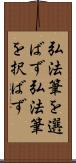 弘法筆を選
ばず弘法筆
を択ばず